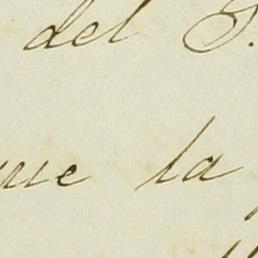 del S.
ue la